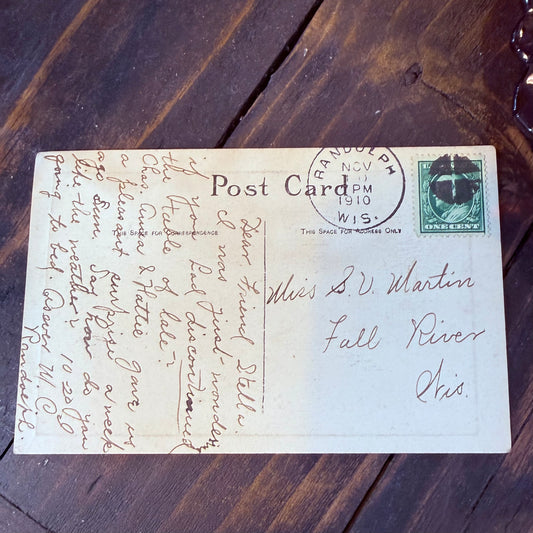 Post Card
THIS SPACE FOR CORRESPONDENCE
THIS SPACE FOR ADDRESS ONLY
RANDOLPH
NOV
PM
1910
WIS.
ONE CENT
Miss S. V. Martin
Fall River
Wis.
Dear Friend Stella.
I was just wonder
if you had discontinued
the of late?
Chas, Anna & Hattie gave us
a pleasant surprise a week
ago Sun. Say how do you
like the weather? 10.20 &
going to bed. Answer W. C.
Randolph.